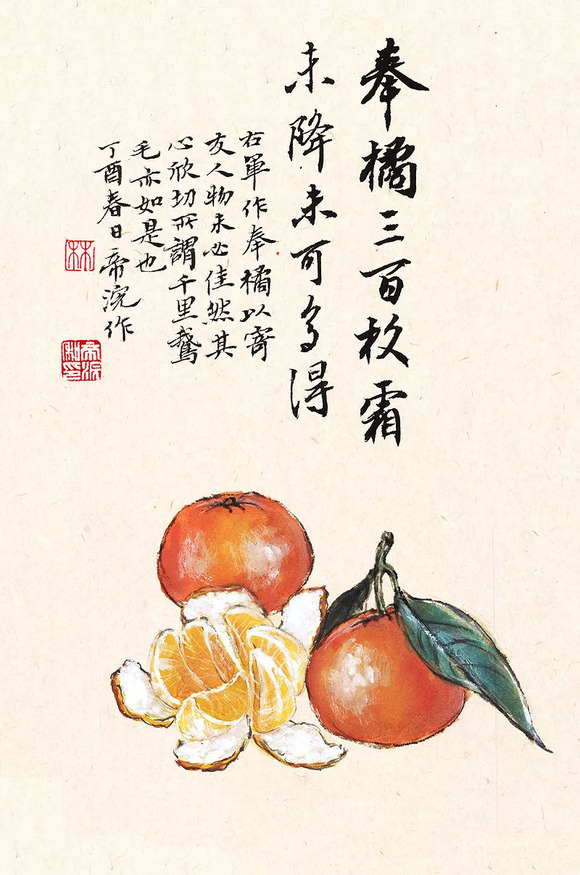 奉橘三百枚霜
未降未可多得
右軍作奉橘以寄
友人物未必佳然其
心欣切所謂千里鵞
毛亦如是也
丁酉春日帝浣作
林